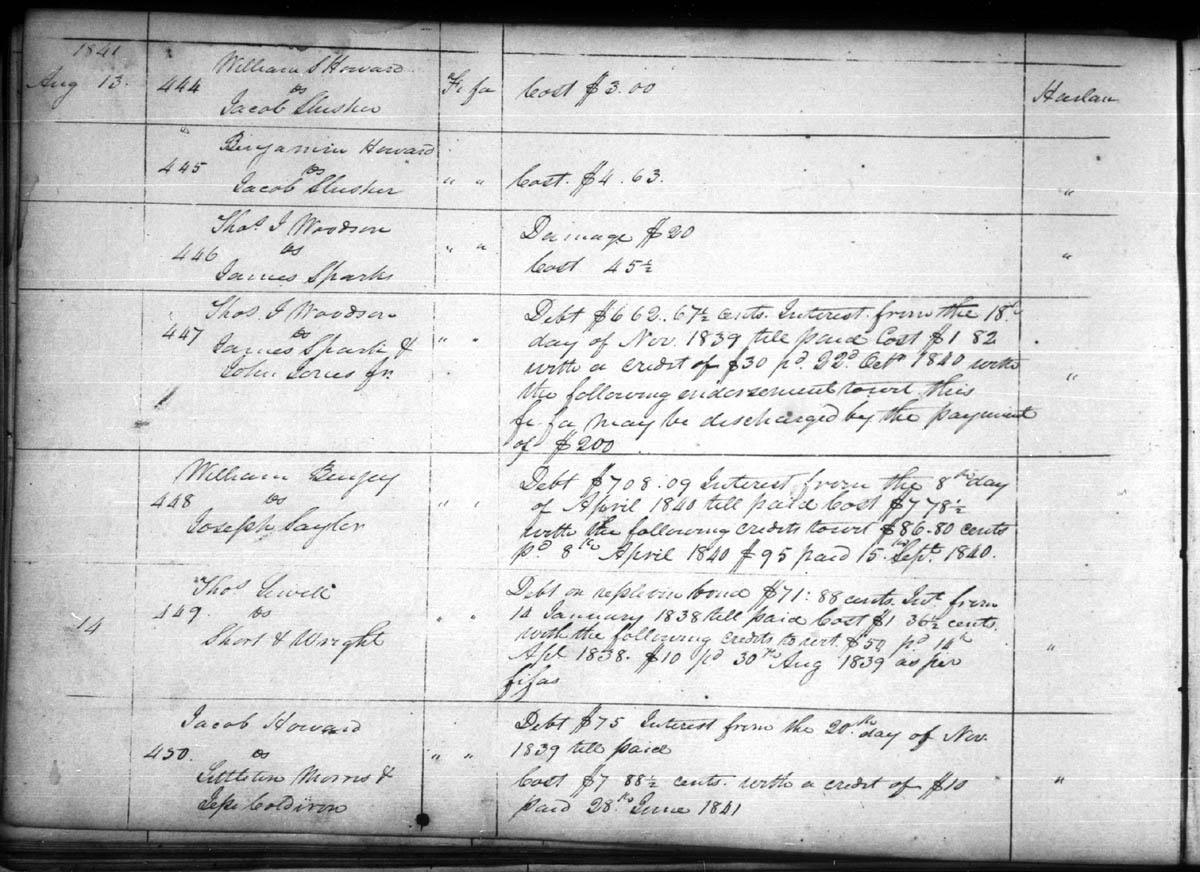 1841
Aug 13. 444 William S Howard
vs
Jacob Slusher
Fi fa Cost $3.00 Harlan
445 Benjamin Howard
vs
Jacob Slusher
" " Cost. $4.63. "
446 Thos. J Woodson
vs
James Sparks
" " Damage $20
Cost 45½ "
447 Thos. J Woodson
vs
James Sparks &
John Jones Jr.
" " Debt $662.67½ cents. Interest from the 18th
day of Nov. 1839 till paid Cost $1 82
with a credit of $30 pd. 22d. Octr 1840 with
the following endorsement towit this
fi fa may be discharged by the payment
of $200 "
448 William
vs
Joseph Saylor
" " Debt $708.09 Interest from the 8th day
of April 1840 till paid Cost $7 78½
with the following credits towit $86.80 cents
pd 8th April 1840 $95 paid 15th Sept. 1840.
14 449. Thos. Sewell
vs
Short & Wright
" " Debt on replevin bond $71:88 cents. Int. from
14 January 1838 till paid Cost $1 36½ cents.
with the following credits to wit. $50 pd 14th
Apl 1838. $10 pd 30th Aug 1839 as per
fifas "
450. Jacob Howard
vs
Littleton Morris &
Coldiron
" " Debt $75 Interest from the 20th day of Nov.
1839 till paid
Cost $7 88½ cents. with a credit of $10
paid 28th June 1841 "